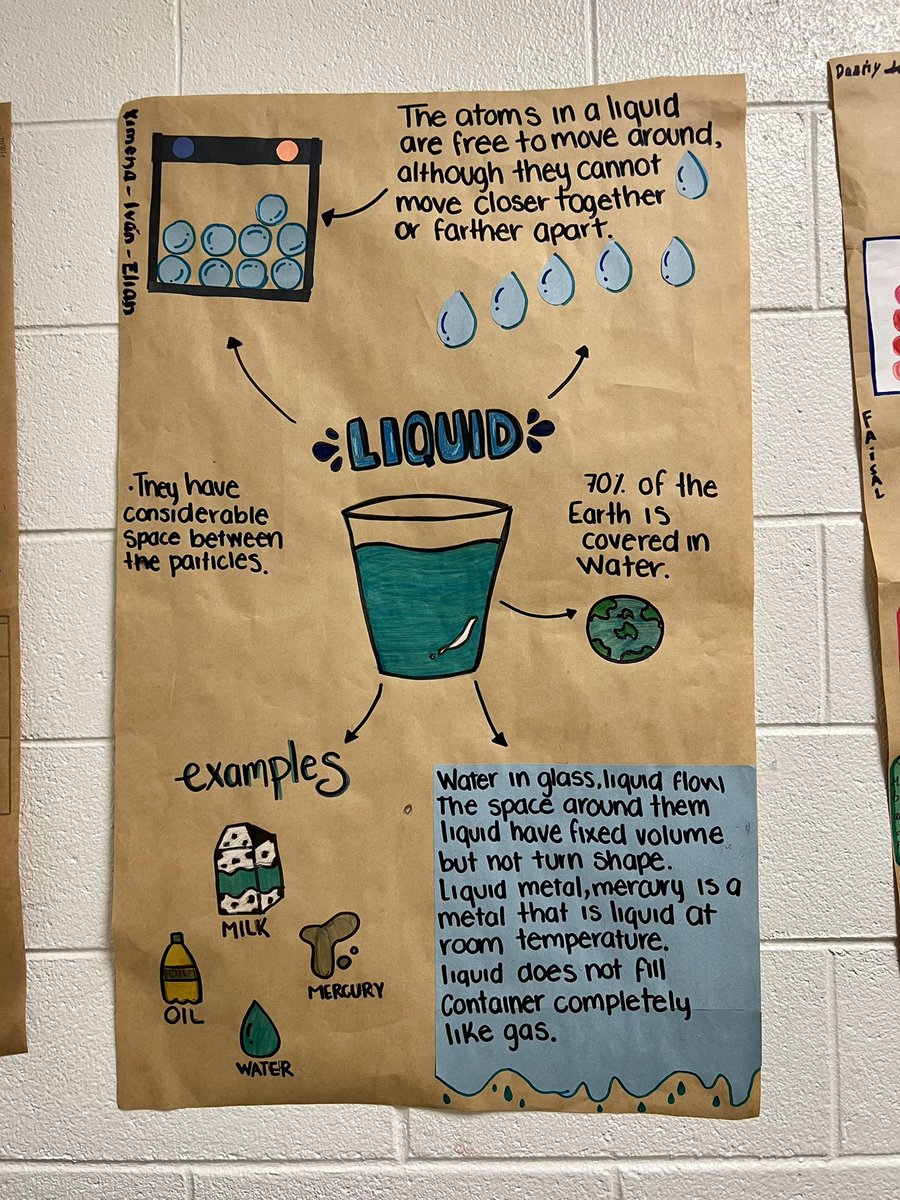 Ximena - Iván - Elian
The atoms in a liquid
are free to move around,
although they cannot
move closer together
or farther apart.
LIQUID
· They have
considerable
space between
the particles.
70% of the
Earth is
covered in
Water.
examples
MILK
OIL
OIL
MERCURY
WATER
Water in glass, liquid flow
The space around them
liquid have fixed volume
but not turn shape.
Liquid metal, mercury is a
metal that is liquid at
room temperature.
liquid does not fill
Container completely
like gas.
FAISAL